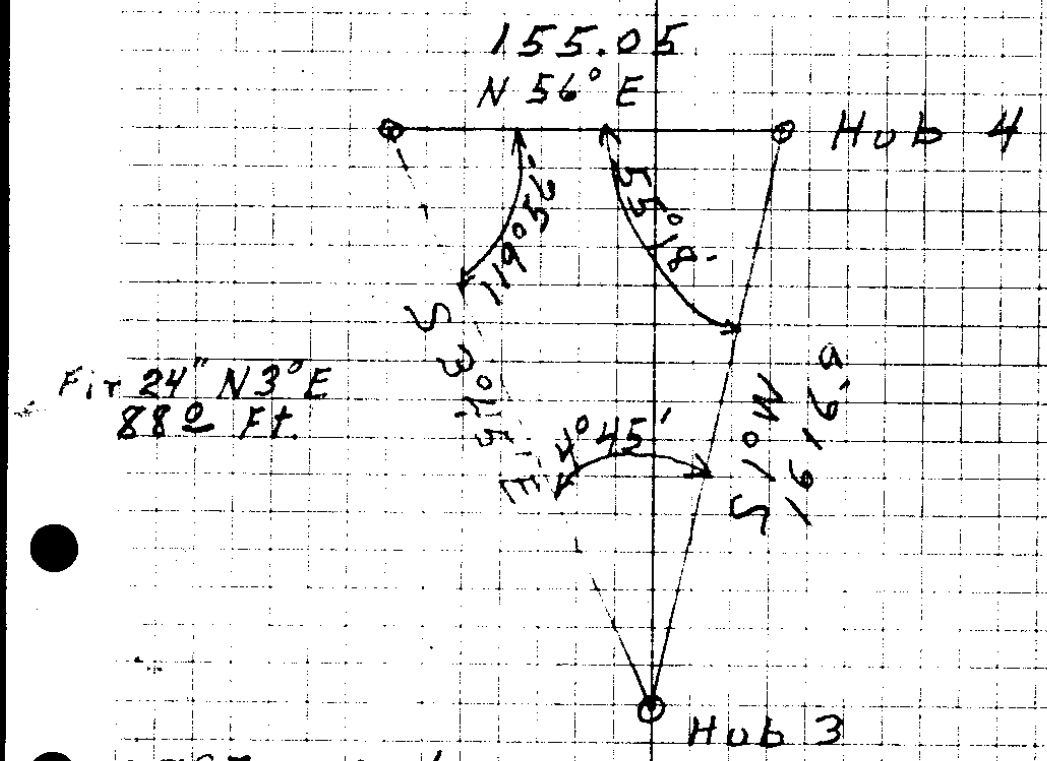 155.05
N 56° E
Hub 4
119°57'
55°18'
S 3°45'E
Fir 24" N3°E
88º Ft.
4°45'
S 1° W
1619.5
Hub 3